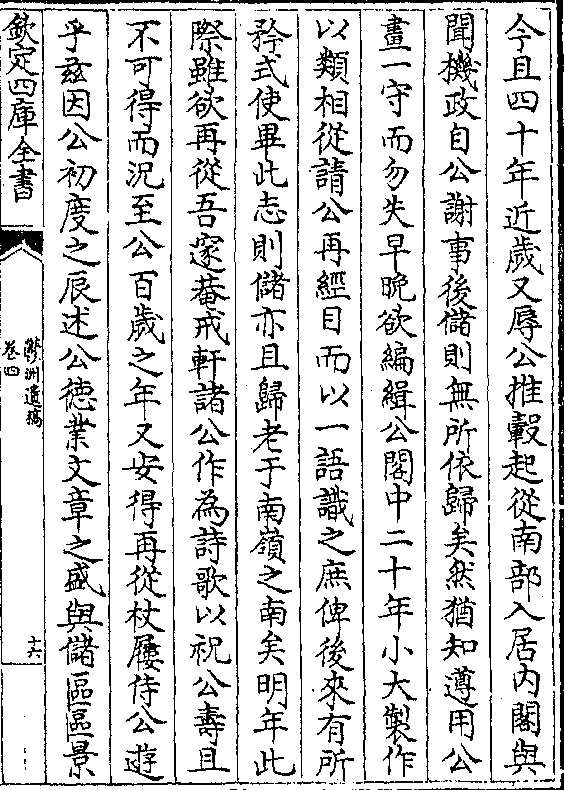 今且四十年近歲又辱公推轂起從南部入居内閣與
聞機政自公謝事後儲則無所依歸矣然猶知遵用公
畫一守而勿失早晚欲編緝公閣中二十年小大製作
以類相從請公再經目而以一語識之庶俾後來有所
矜式使畢此志則儲亦且歸老于南嶺之南矣明年此
際雖欲再從吾邃菴戒軒諸公作為詩歌以祝公壽且
不可得而況至公百歲之年又安得再從杖屨侍公遊
乎兹因公初度之辰述公徳業文章之盛與儲區區景
欽定四庫全書
鬱洲遺稿
卷四
十六